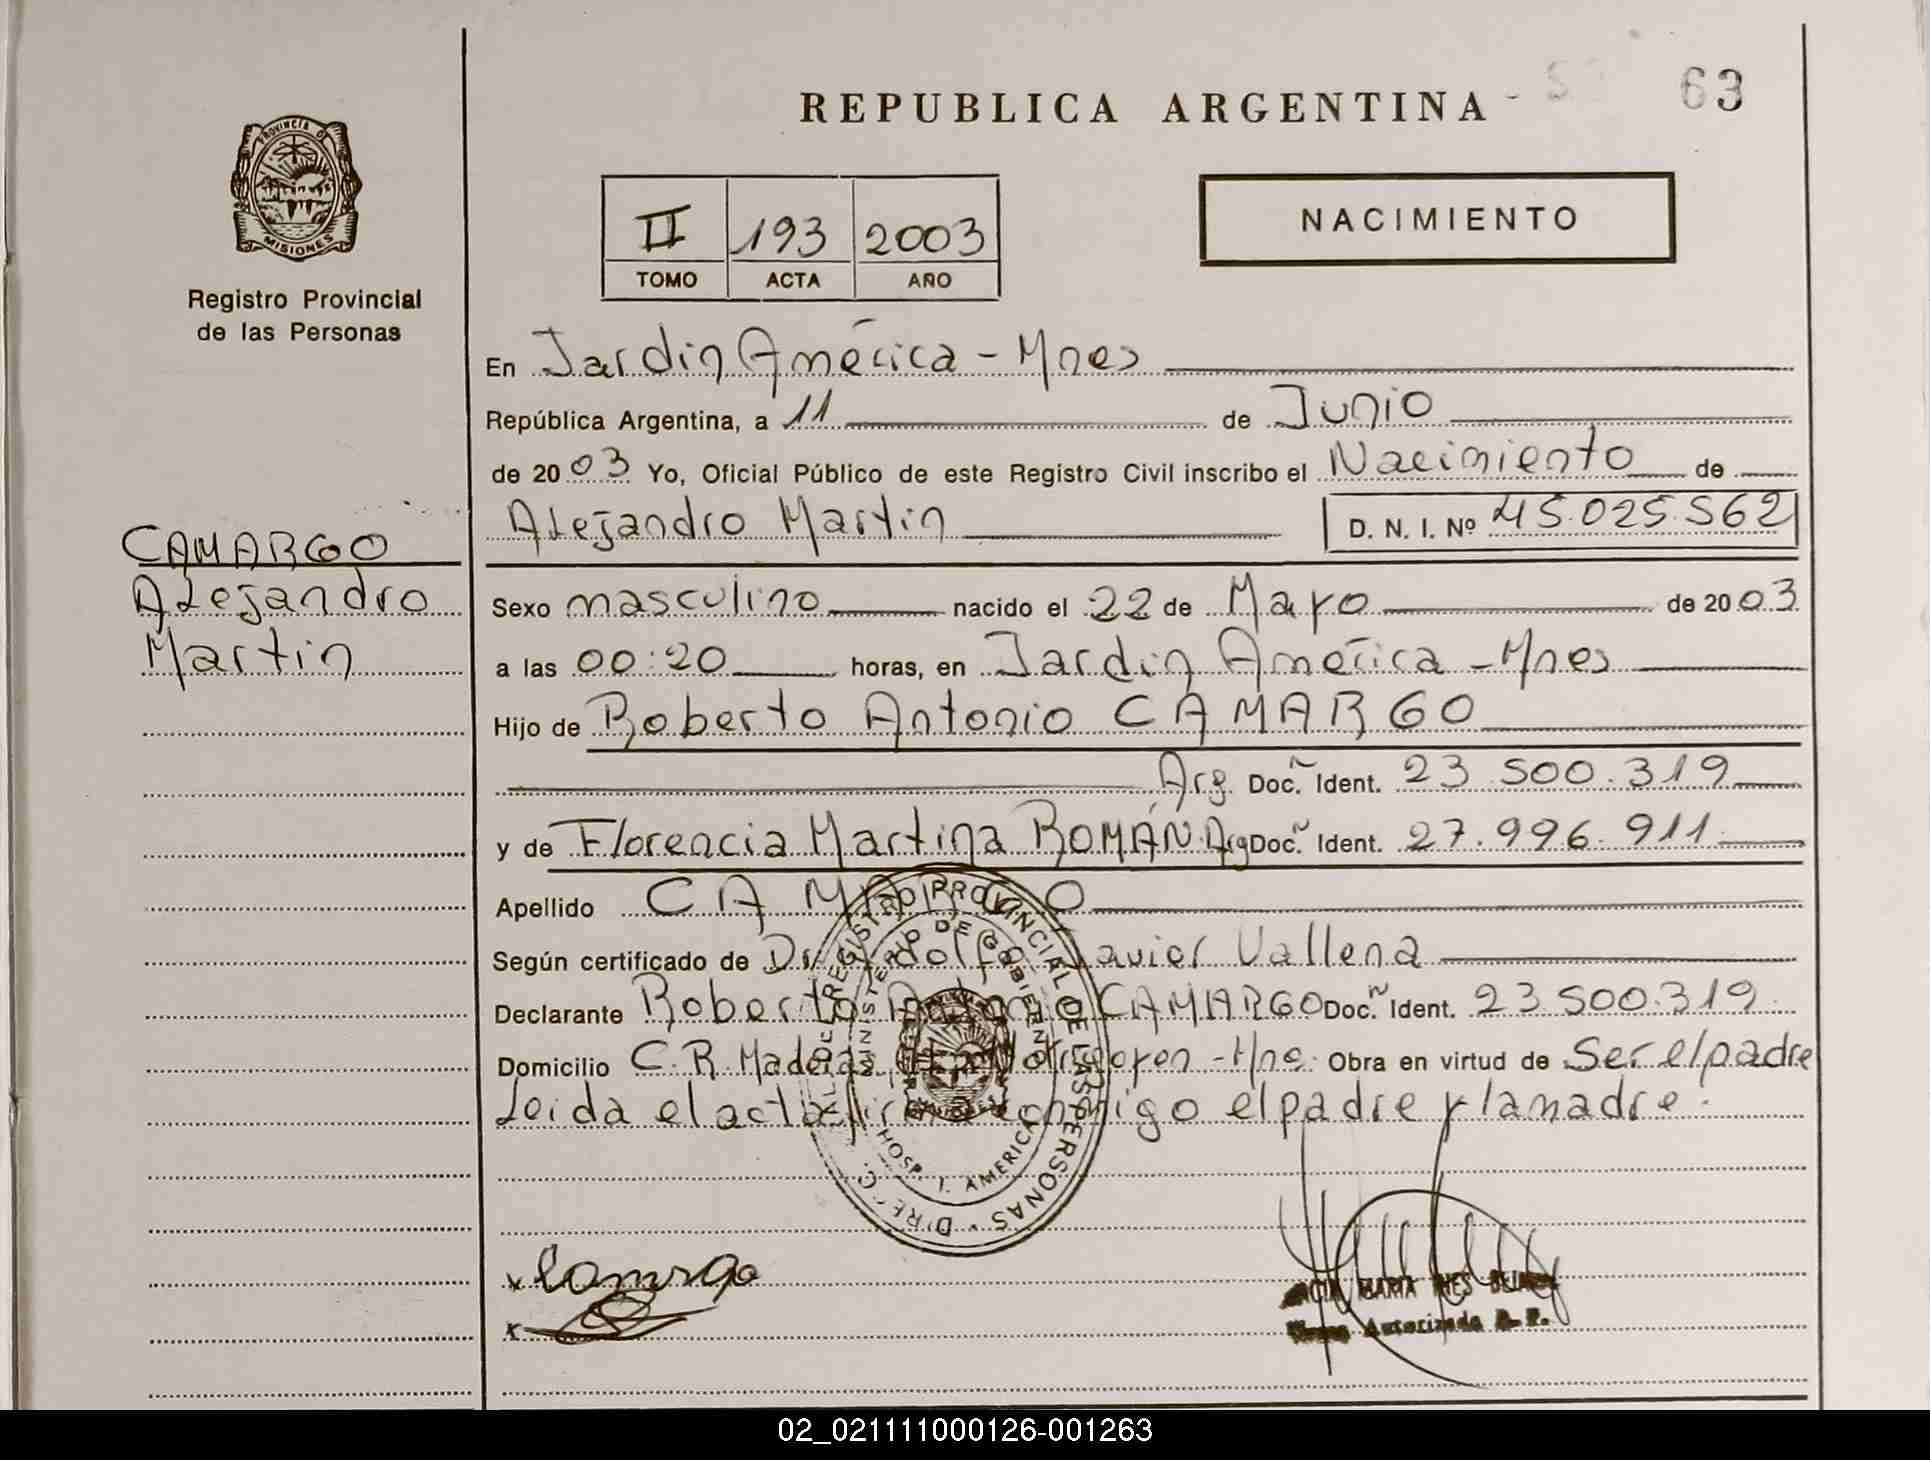 REPUBLICA ARGENTINA
63
PROVINCIA DE
MISIONES
Registro Provincial
de las Personas
II 193 2003
TOMO ACTA AÑO
NACIMIENTO
En Jardin América - Mnes
República Argentina, a 11 de Junio
de 2003 Yo, Oficial Público de este Registro Civil inscribo el Nacimiento de
Alejandro Martin D. N. I. Nº 45.025.562
CAMARGO
Alejandro
Martin
Sexo masculino nacido el 22 de Mayo de 2003
a las 00:20 horas, en Jardin América - Mnes
Hijo de Roberto Antonio CAMARGO
Arg. Doc. Ident. 23.500.319
y de Florencia Martina ROMÁN Arg Doc. Ident. 27.996.911
Apellido CAMARGO
Según certificado de Dr. Javier Vallena
Declarante Roberto Antonio CAMARGO Doc. Ident. 23.500.319
Domicilio C.R. Obra en virtud de Ser el padre
Leida el acta firma conmigo el padre y la madre.
REGISTRO PROVINCIAL DE LAS PERSONAS
MINISTERIO DE GOBIERNO
HOSP. J. AMERICA
x Camargo
x
MARIA INES
Autorizada R. P.
02_021111000126-001263